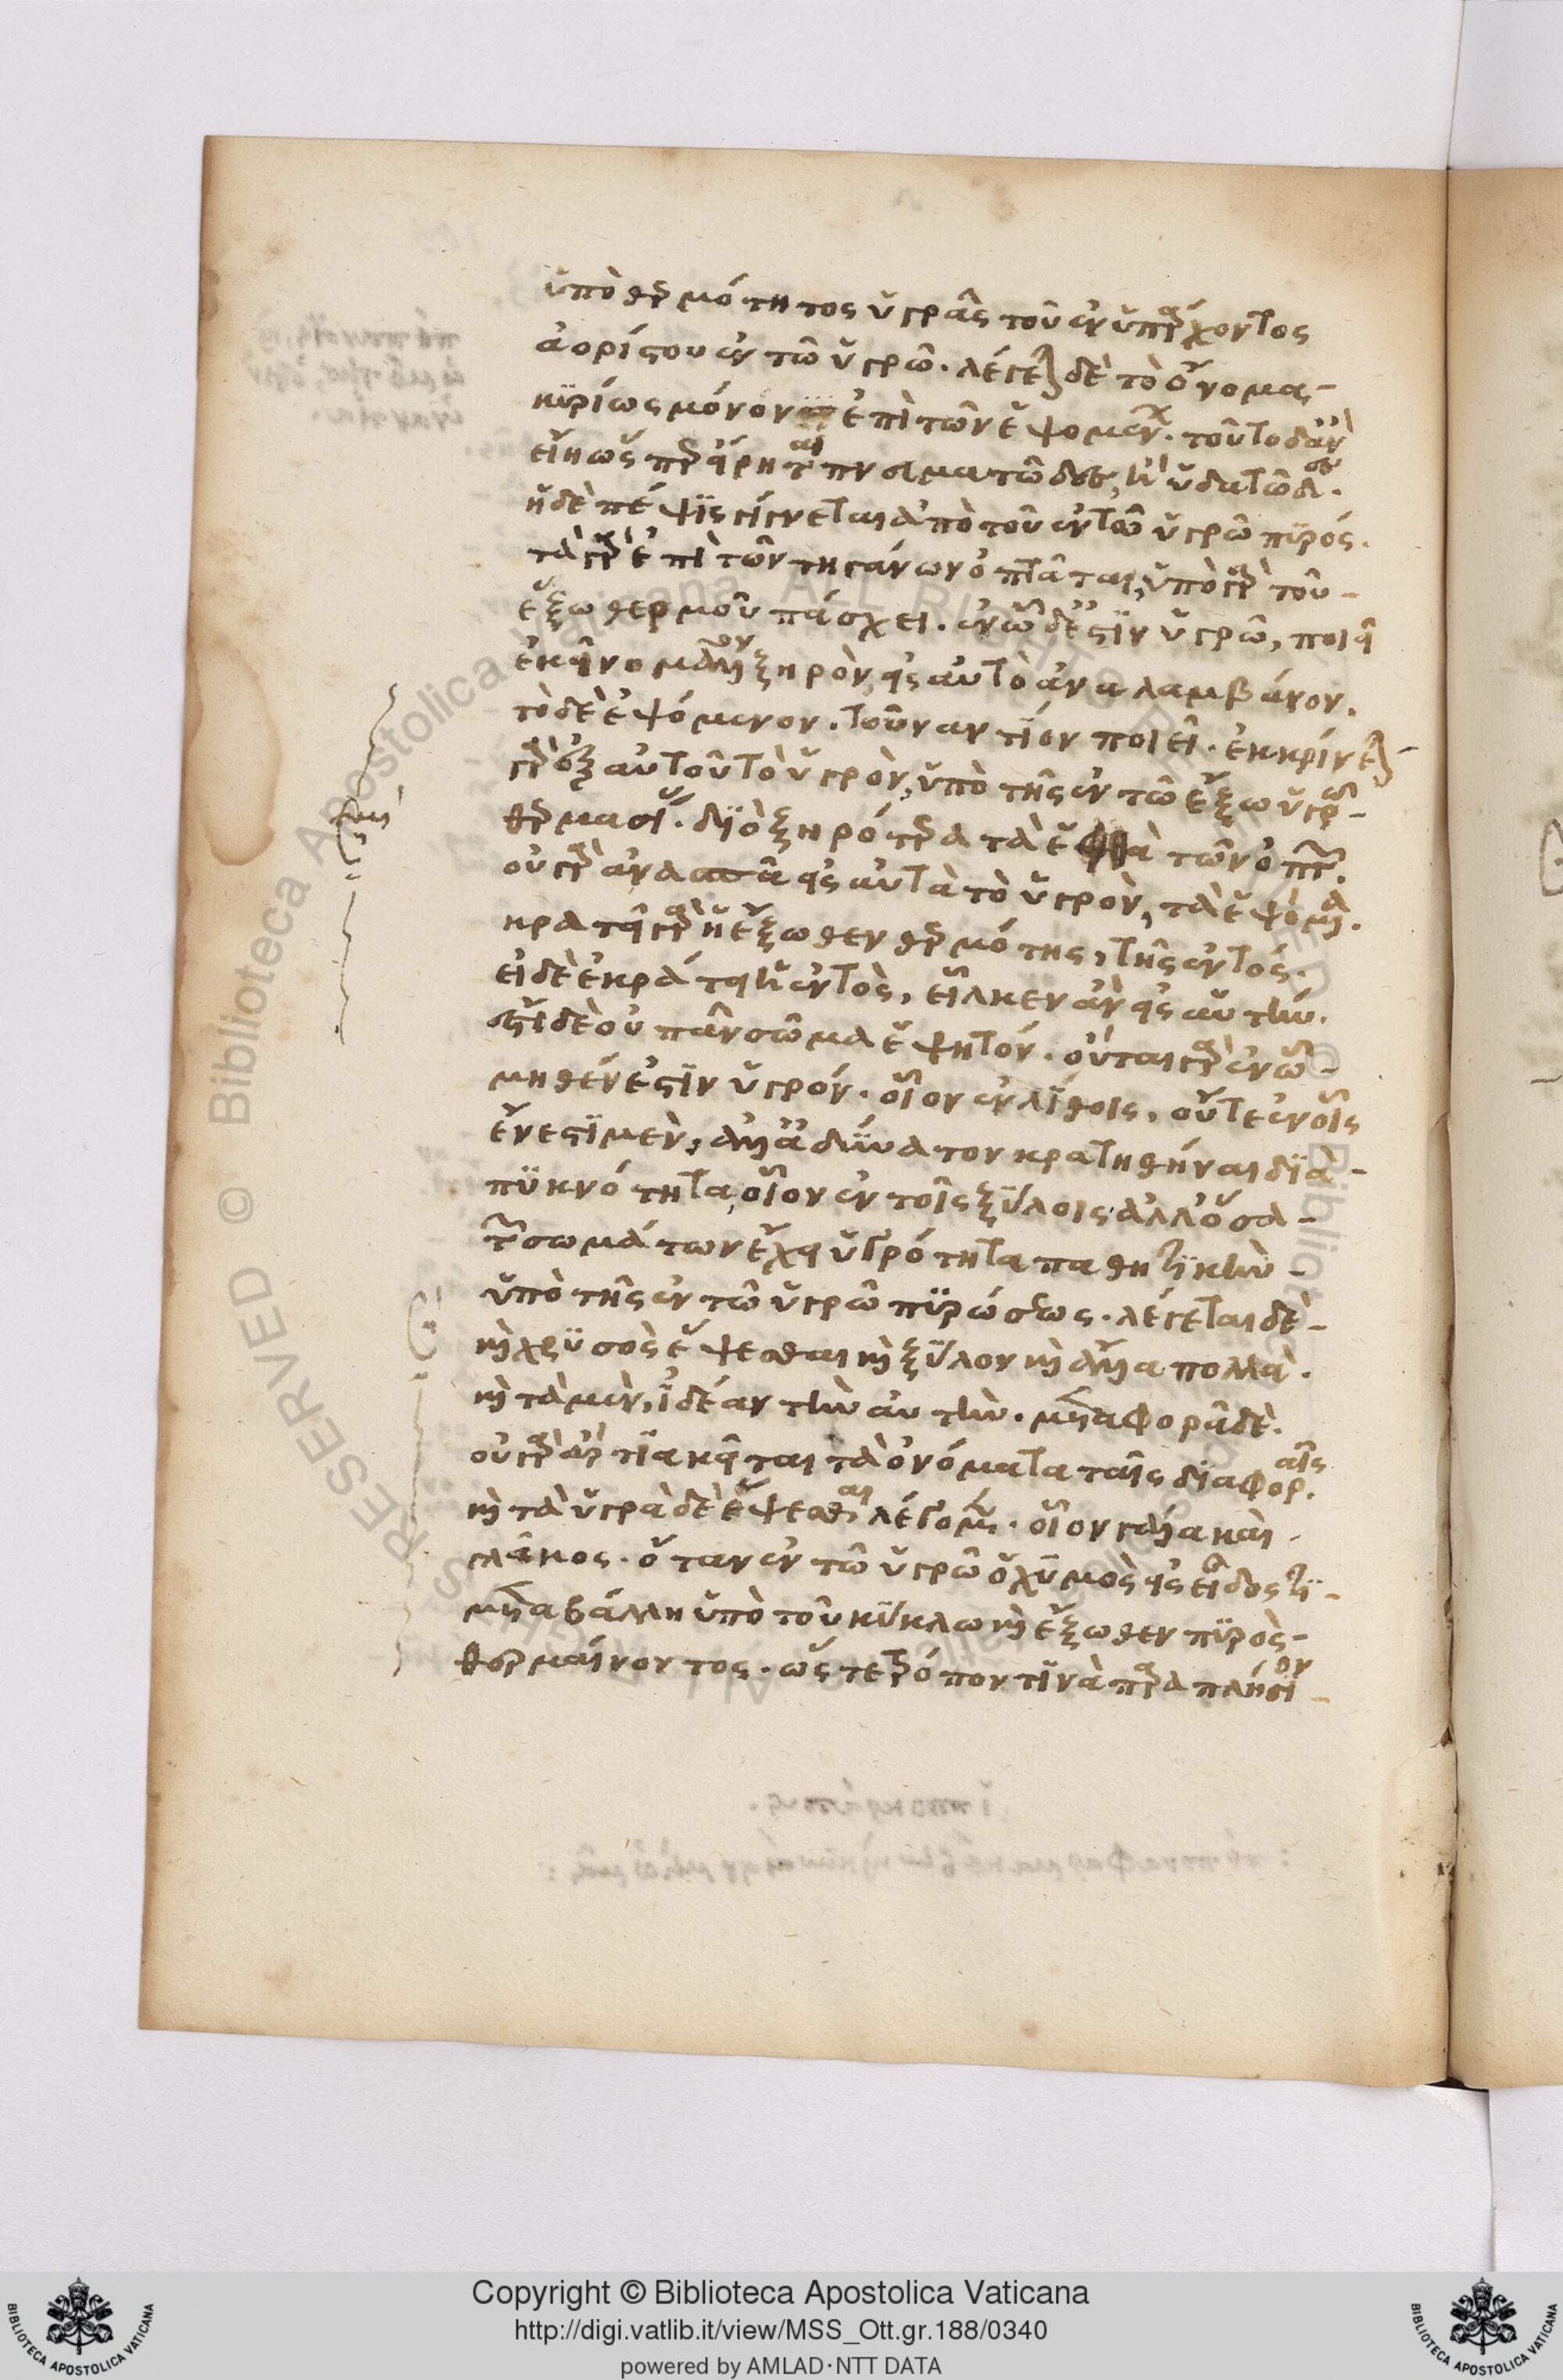 ὑπὸ θερμότητος ὑγρᾶς τοῦ ἐνυπάρχοντος
ἀορίστου ἐν τῶ ὑγρῶ. λέγεται δὲ τὸ ὄνομα
κυρίως μόνον ἐπὶ τῶν ἑψομένων. τοῦτο δ' ἂν
εἴη ὥσπερ εἴρηται πνευματῶδες, ἢ ὑδατῶδες.
ἡ δὲ πέψις γίγνεται ἀπὸ τοῦ ἐν τῶ ὑγρῶ πυρός.
τὸ γὰρ ἐπὶ τῶν τηγάνων ὀπτᾶται, ὑπὸ γὰρ τοῦ
ἔξω θερμοῦ πάσχει. ἐν ὧ δέ ἐστιν ὑγρῶ, ποιεῖ
ἐκεῖνο μᾶλλον ξηρὸν εἰς αὑτὸ ἀναλαμβάνον.
τὸ δὲ ἑψόμενον. τοὐναντίον ποιεῖ. ἐκκρίνεται
γὰρ ἐξ αὐτοῦ τὸ ὑγρὸν, ὑπὸ τῆς ἐν τῶ ἔξω ὑγρῶ
θερμασίας. διὸ ξηρότερα τὰ ἑφθὰ τῶν ὀπτῶν.
οὐ γὰρ ἀνασπᾶ εἰς αὑτὰ τὸ ὑγρὸν, τὰ ἑψόμενα.
κρατεῖ γὰρ ἡ ἔξωθεν θερμότης, τῆς ἐντός.
εἰ δὲ ἐκράτει ἡ ἐντὸς, εἷλκεν ἂν εἰς αὑτήν.
ἔστι δὲ οὐ πᾶν σῶμα ἑψητόν. οὔτε γὰρ ἐν ὧ
μηθέν ἐστιν ὑγρόν. οἷον ἐν λίθοις, οὔτε ἐν οἷς
ἔνεστι μὲν, ἀλλ' ἀδύνατον κρατηθῆναι διὰ
πυκνότητα, οἷον ἐν τοῖς ξύλοις ἀλλ' ὅσα
τῶν σωμάτων ἔχει ὑγρότητα παθητικὴν
ὑπὸ τῆς ἐν τῶ ὑγρῶ πυρώσεως. λέγεται δὲ
καὶ χρυσὸς ἕψεσθαι καὶ ξύλον καὶ ἄλλα πολλά.
κατὰ μὲν, ἰδέαν τὴν αὐτὴν. μεταφορᾶ δὲ.
οὐ γάρ ἐστι κείται τὰ ὀνόματα ταῖς διαφοραῖς.
καὶ τὰ ὑγρὰ δὲ ἕψεσθαι λέγομεν. οἷον γάλα καὶ
γλεῦκος. ὅταν ἐν τῶ ὑγρῶ ὁ χυμὸς εἰς εἶδός τι
μεταβάλλη ὑπὸ τοῦ κύκλω καὶ ἔξωθεν πυρὸς
θερμαίνοντος. ὥστε τρόπον τινὰ παραπλήσιον
Copyright © Biblioteca Apostolica Vaticana
http://digi.vatlib.it/view/MSS_Ott.gr.188/0340
powered by AMLAD·NTT DATA